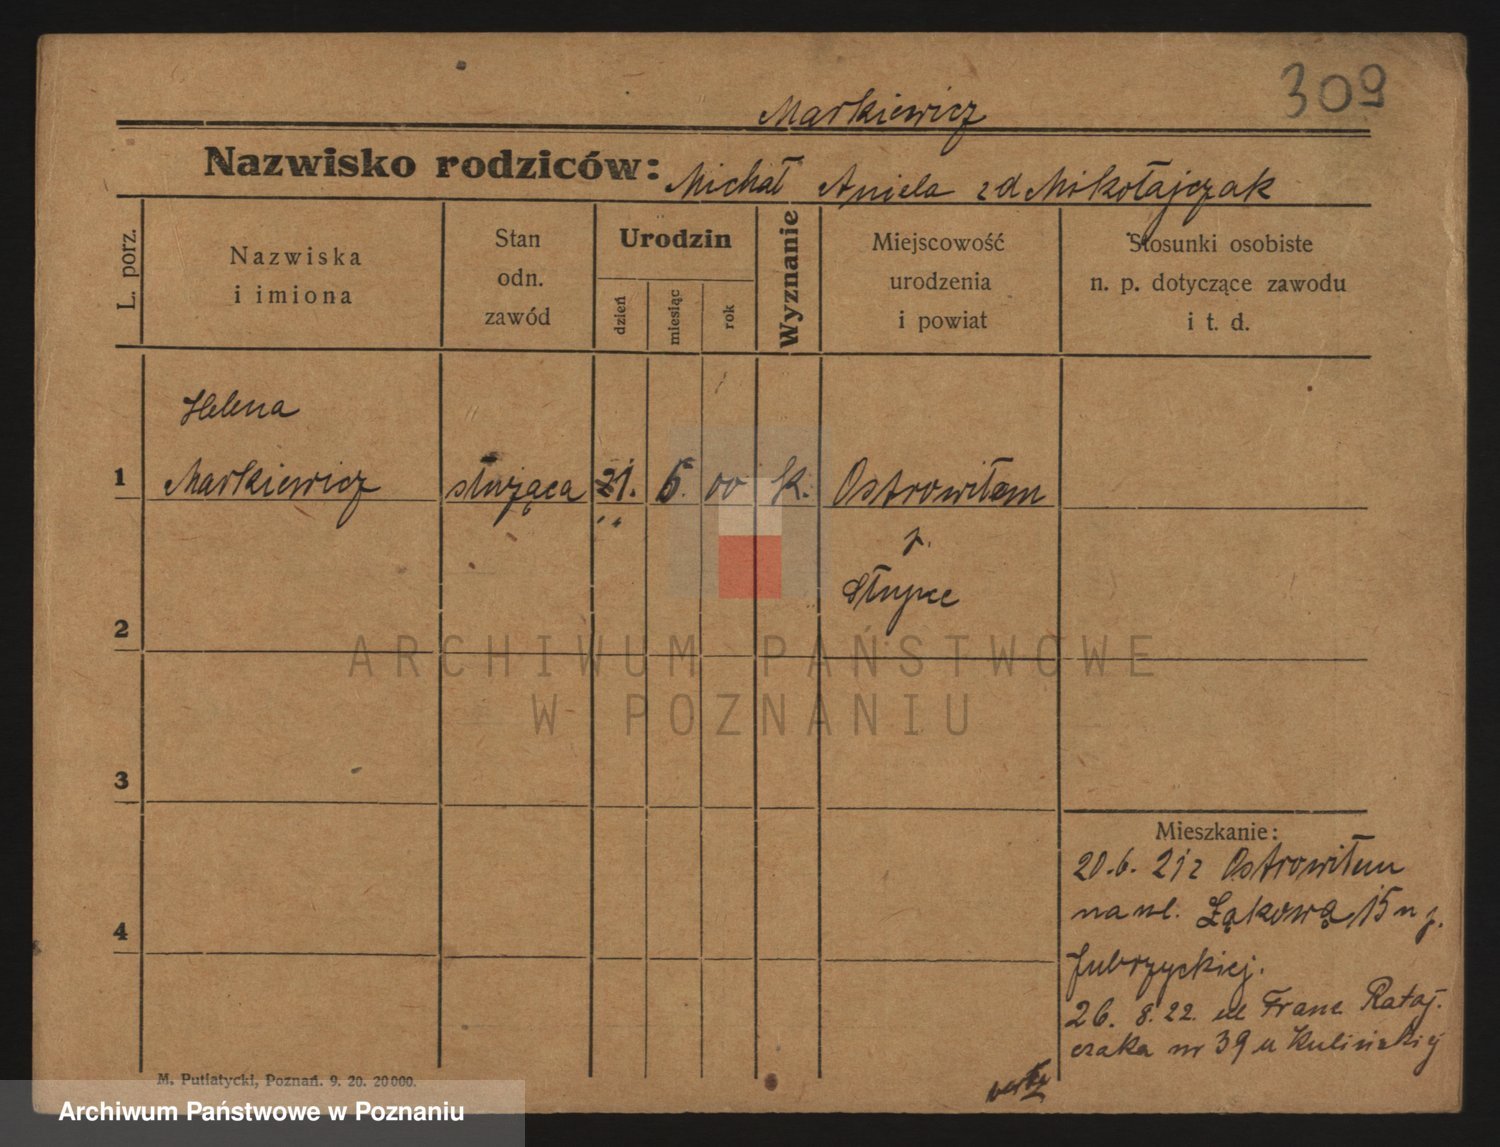 309
Markiewicz
Nazwisko rodziców: Michał Aniela zd Mikołajczak
L. porz.
Nazwiska
i imiona
Stan
odn.
zawód
Urodzin
dzień
miesiąc
rok
Wyznanie
Miejscowość
urodzenia
i powiat
Stosunki osobiste
n. p. dotyczące zawodu
i t. d.
Helena
1 Markiewicz służąca 21. 6. 00 K. Ostrowitem
p.
Słupce
2
3
4
ARCHIWUM PAŃSTWOWE
W POZNANIU
Mieszkanie:
20.6. 21 z Ostrowitem
na ul. Łąkową 15 u p.
26. 8. 22. ul Franc Rataj-
czaka nr 39 u
M. Putiatycki, Poznań. 9. 20. 20000.
Archiwum Państwowe w Poznaniu